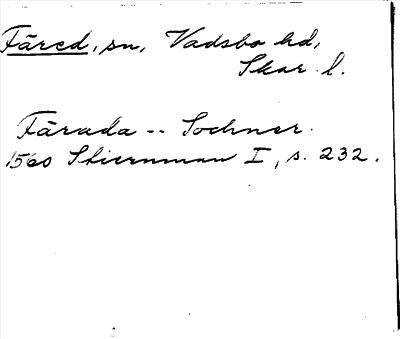 Färed, sn, Vadsbo hd,
Skar. l.
Färada -- Sochner.
1560 Stiernman I, s. 232.